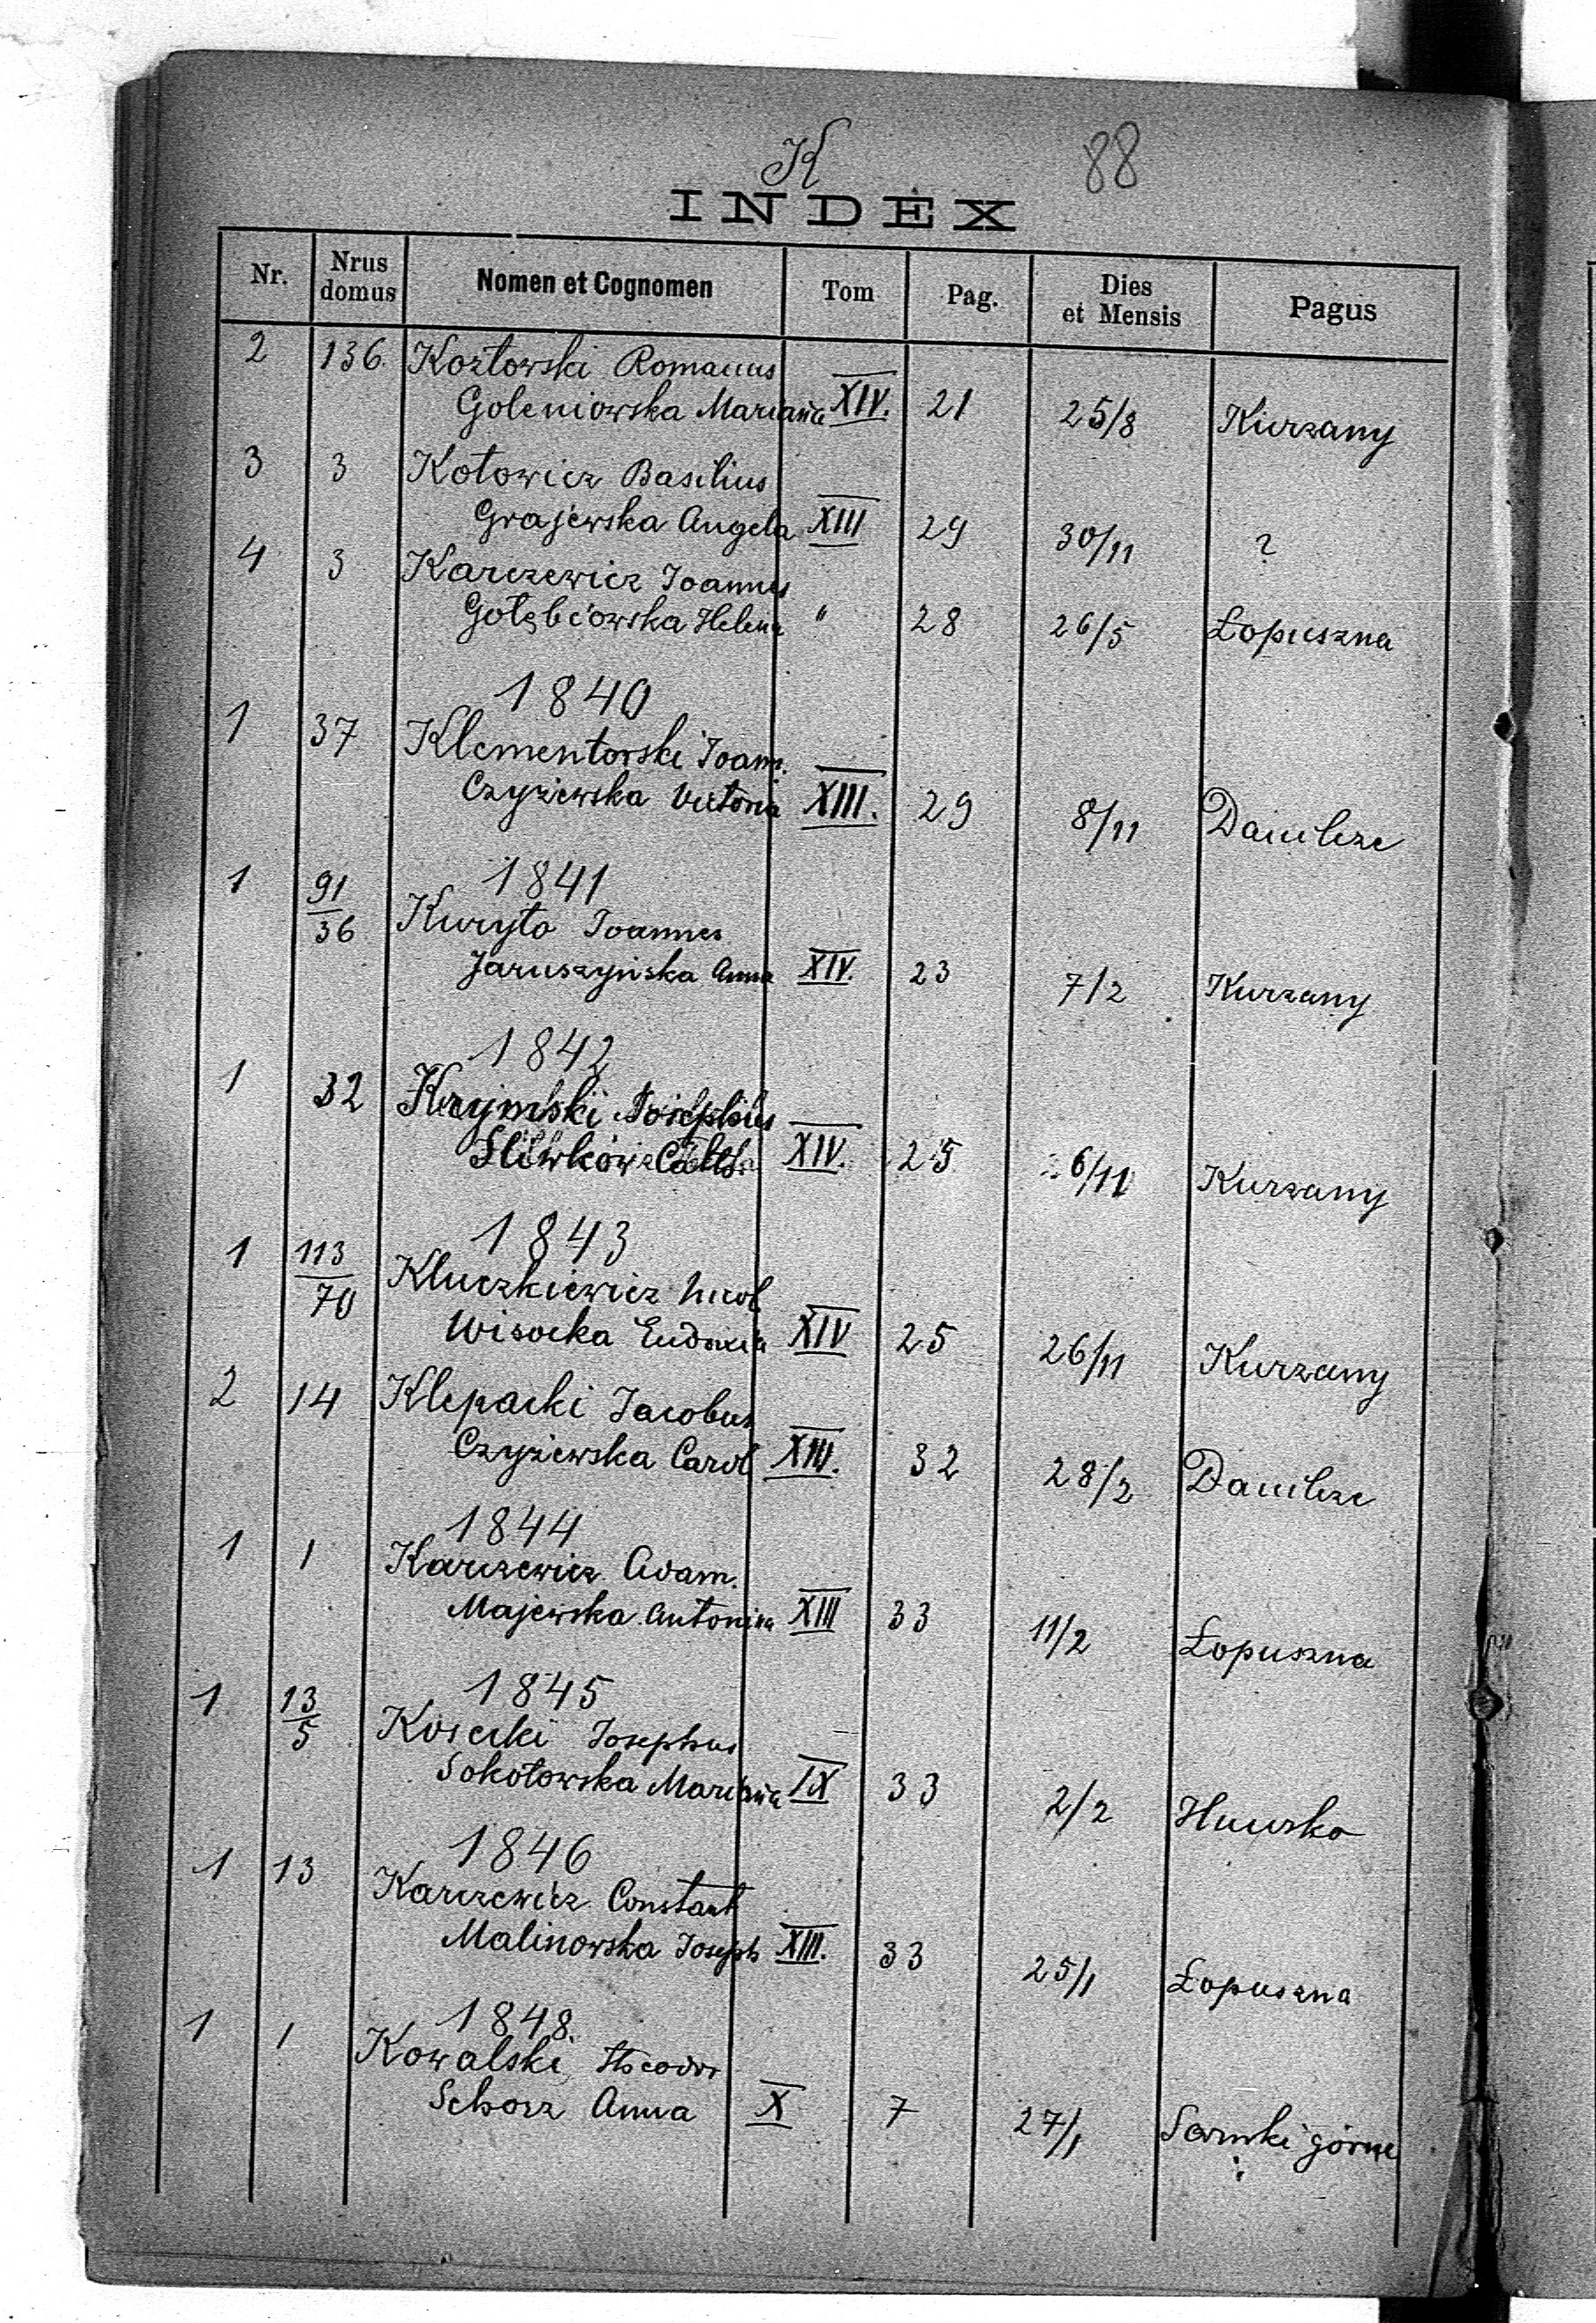 K 88
INDEX
Nr. Nrus domus Nomen et Cognomen Tom Pag. Dies et Mensis Pagus
2 136. Kozłowski Romanus
Goleniowska Marianna XIV. 21 25/8 Kurzany
3 3 Kotowicz Basilius
Grajewska Angela XIII 29 30/11 ?
4 3 Karczewicz Joannes
Gołębiowska Helena " 28 26/5 Łopuszna
1840
1 37 Klementorski Joann.
Czyżewska Victoria XIII. 29 8/11 Danilcze
1841
1 91/36 Kuryło Joannes
Jaruszyńska Anna XIV. 23 7/2 Kurzany
1842
1 32 Krzymski Josephus
Śliwków XIV. 25 6/11 Kurzany
1843
1 113/70 Kluczkiewicz Nicol.
Wisocka Eudoxia XIV 25 26/11 Kurzany
2 14 Klepacki Jacobus
Czyżewska Carol XIII. 32 28/2 Danilcze
1844
1 1 Karczewicz Adam.
Majewska Antonina XIII 33 11/2 Łopuszna
1845
1 13/5 Kosecki Josephus
Sokołowska Marianna IX 33 2/2 Hnusko
1846
1 13 Karczewicz Constant
Malinowska Joseph XIII. 33 25/1 Łopuszna
1848.
1 1 Kowalski Theodor
Schosz Anna X 7 27/1 Sarnki górne